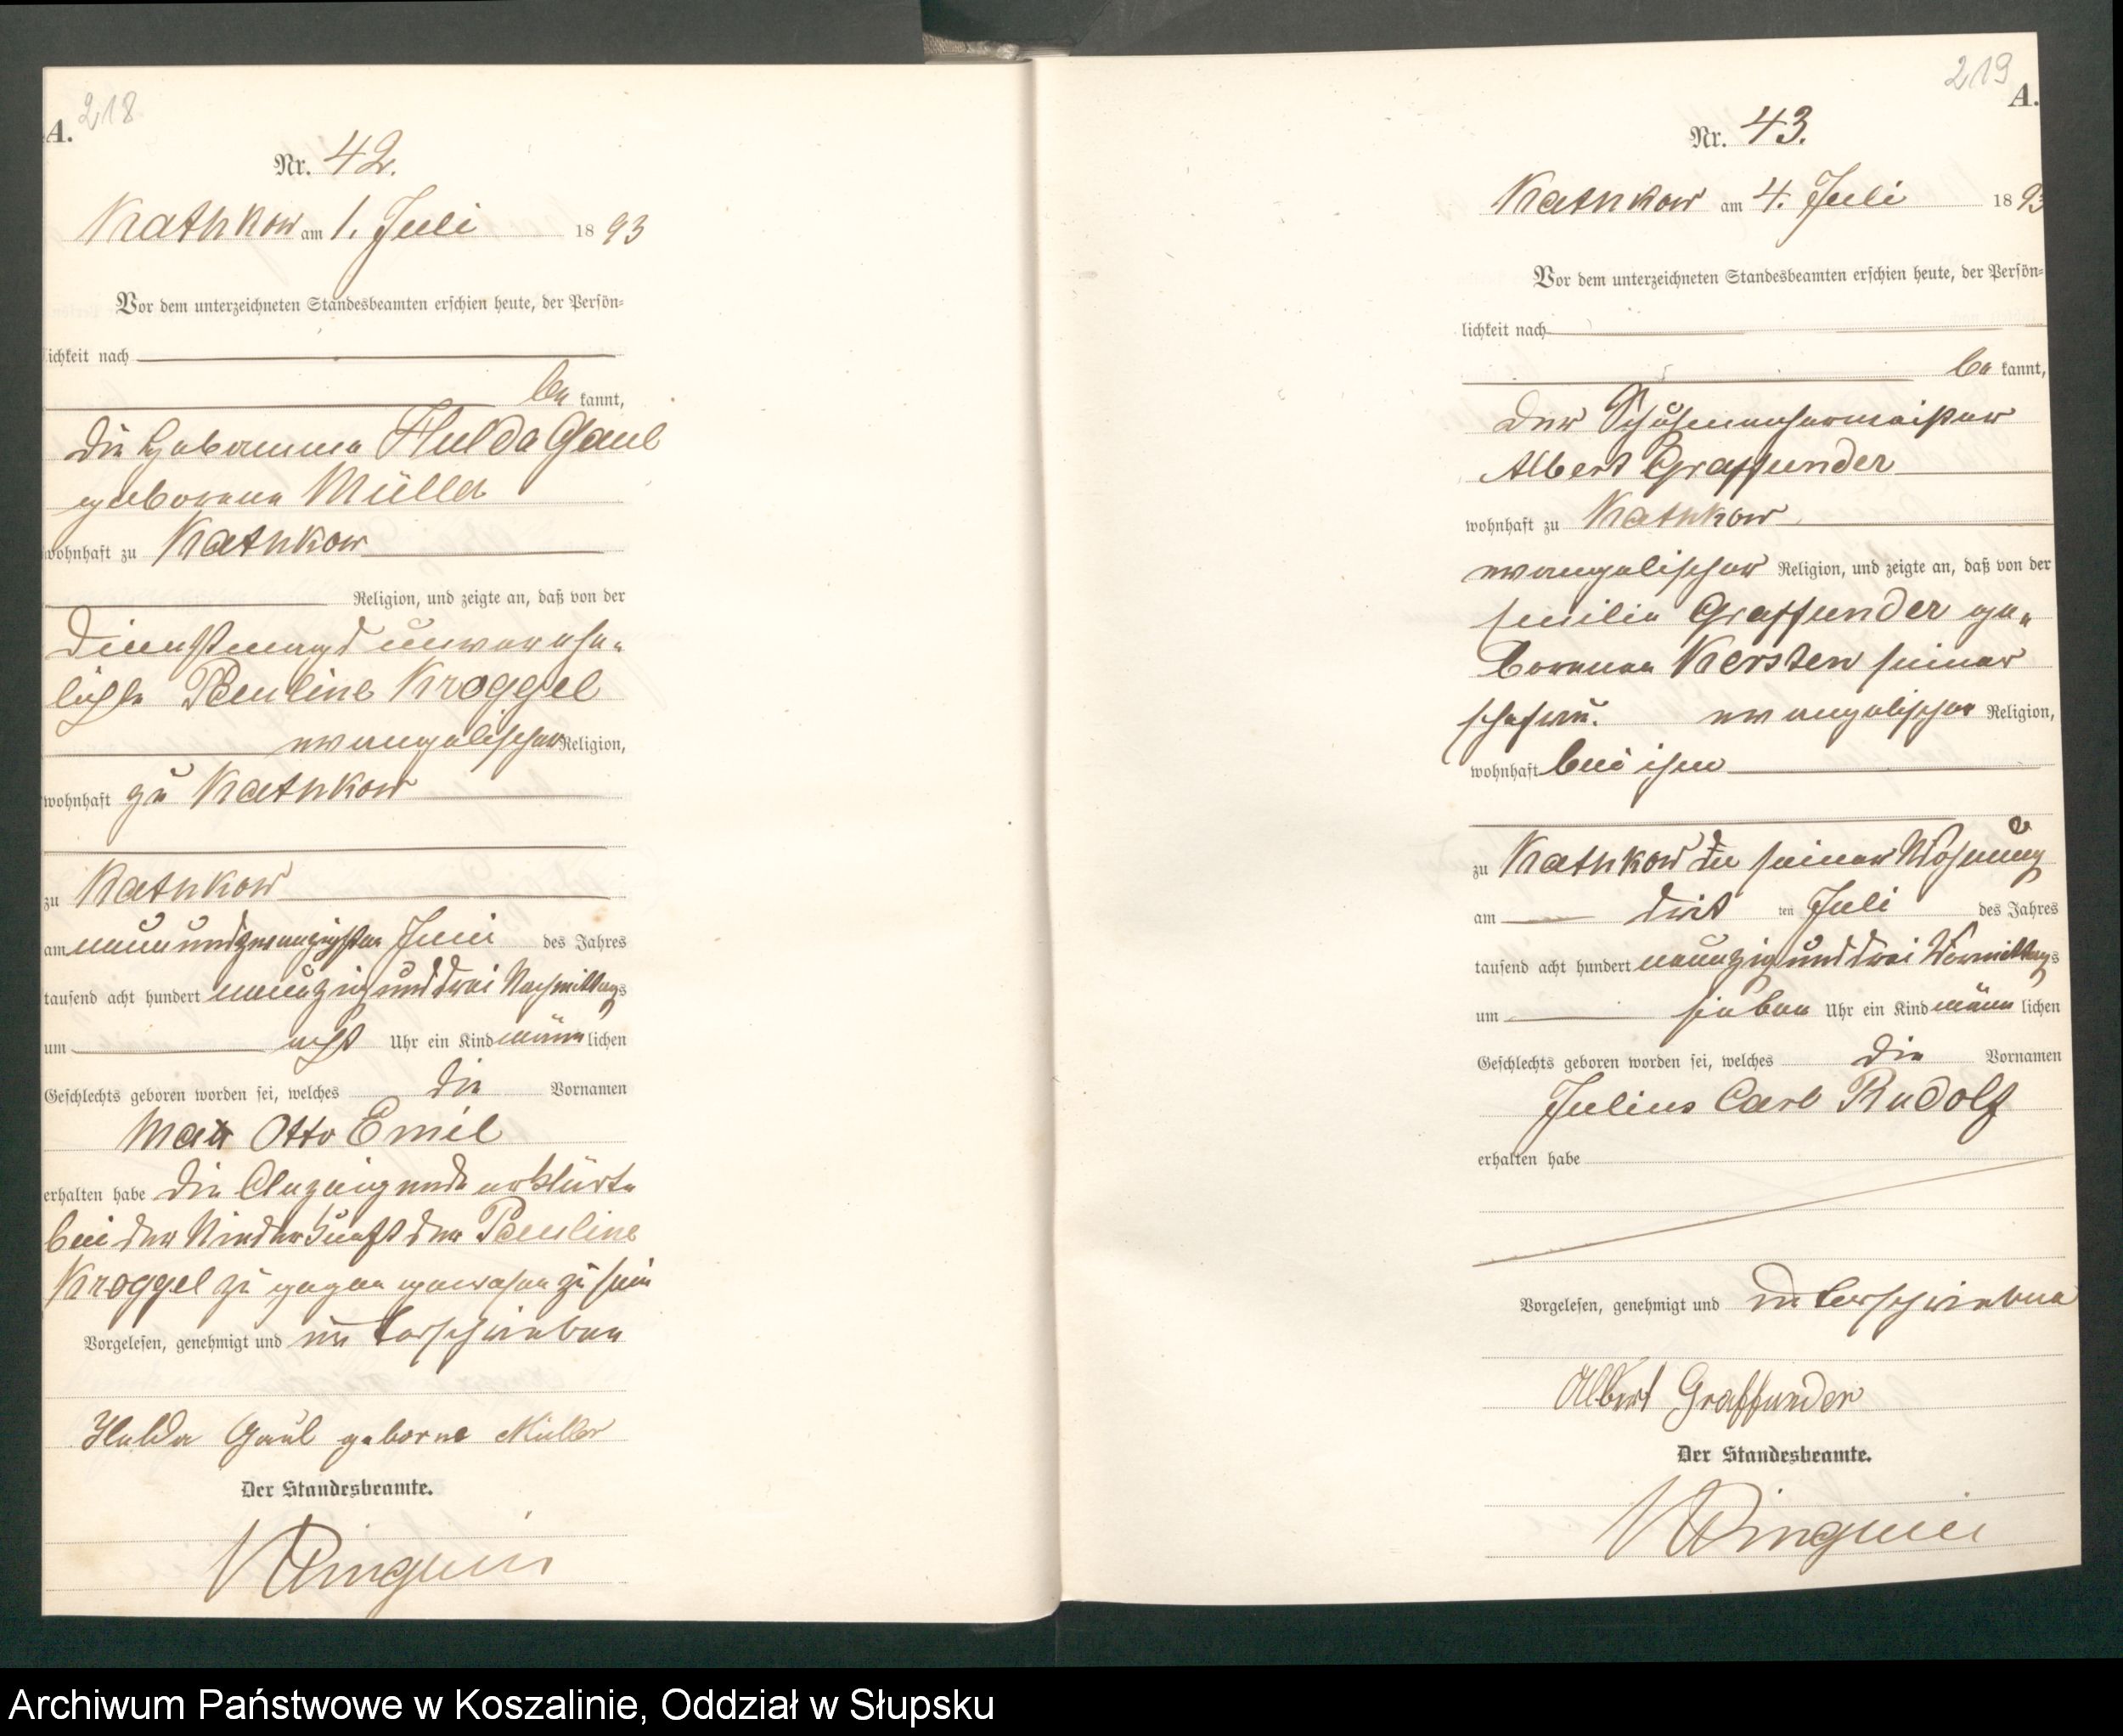 218
A.
Nr. 42.
Kathkow am 1. Juli 1893
Vor dem unterzeichneten Standesbeamten erschien heute, der Persön-
lichkeit nach
be kannt,
die Hebamme Hulda Gaul
geborene Müller
wohnhaft zu Kathkow
Religion, und zeigte an, daß von der
Dienstmagd unverehe-
lichte Pauline Kroggel
evangelischer Religion,
wohnhaft zu Kathkow
zu Kathkow
am neunundzwanzigsten Juni des Jahres
tausend acht hundert neunzig und drei Nachmittags
um acht Uhr ein Kind männlichen
Geschlechts geboren worden sei, welches die Vornamen
Max Otto Emil
erhalten habe Die Anzeigende erklärte
bei der Niederkunft der Pauline
Kroggel zugegen gewesen zu sein
Vorgelesen, genehmigt und unterschrieben
Hulda Gaul geborne Müller
Der Standesbeamte.
219
A.
Nr. 43.
Kathkow am 4. Juli 1893
Vor dem unterzeichneten Standesbeamten erschien heute, der Persön-
lichkeit nach
be kannt,
der Schuhmachermeister
Albert Graffunder
wohnhaft zu Kathkow
evangelischer Religion, und zeigte an, daß von der
Emilie Graffunder ge-
borenen Kersten seiner
Ehefrau. evangelischer Religion,
wohnhaft bei ihm
zu Kathkow in seiner Wohnung
am drit ten Juli des Jahres
tausend acht hundert neunzig und drei Vormittags
um sieben Uhr ein Kind männlichen
Geschlechts geboren worden sei, welches die Vornamen
Julius Carl Rudolf
erhalten habe
Vorgelesen, genehmigt und unterschrieben
Albert Graffunder
Der Standesbeamte.
Archiwum Państwowe w Koszalinie, Oddział w Słupsku